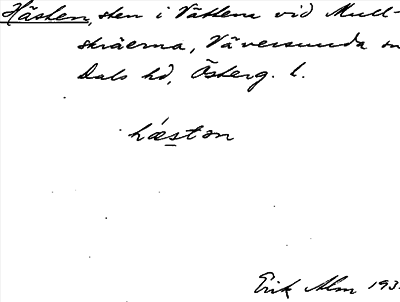 Hästen, sten i Vättern vid Mull-
skräerna, Väversunda sn
Dals hd, Österg. l.
hǽstən
Erik Alm 193